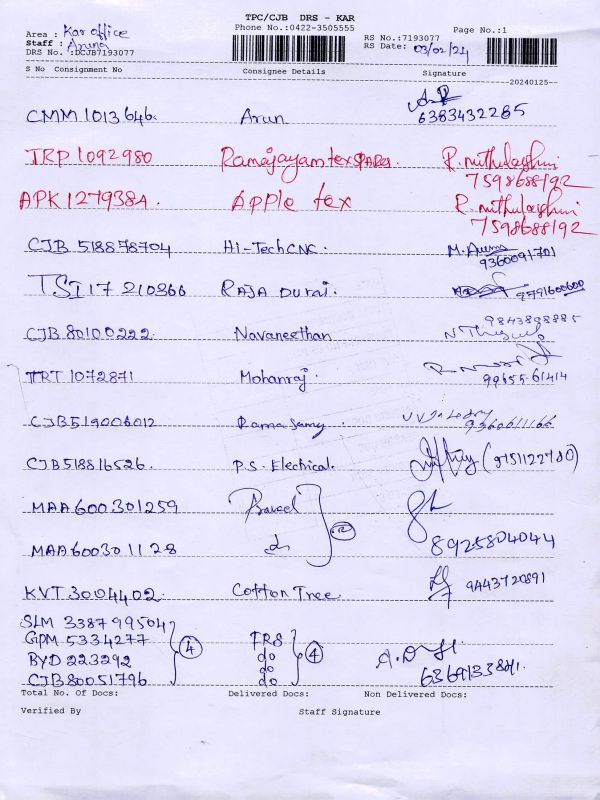 TPC/CJB DRS - KAR
Phone No.:0422-3505555
Page No.:1
Area : Kar office
Staff : Aruna
DRS No. :DCJB7193077
RS No.:7193077
RS Date: 03/02/24
S No Consignment No Consignee Details Signature
20240125
CMM 1013646 Arun 6383432285
TRP 1092980 Ramajayam tex R. mithulashini
7598688192
APK 1279384 Apple tex R. mithulashini
7598688192
CJB 518878704 Hi-Tech CNC. M. Aruna
9360091701
TSI17 210366 RAJA Durai. 9791600600
CJB 80100222 Navaneethan 9843898885
TRT 1072871 Mohanraj. 99655-61414
CJB519006012 Ramasamy. 9360611166
CJB518816526. P.S. Electrical. (9751122780)
MAA600301259
MAA600301128 do 2 8925804044
KVT 3004402 Cotton Tree. 9443720891
SLM 338799504
GPM 5334277 TRS
BYD 223292 4 do 4
CJB80051796 do
do
Total No. Of Docs: Delivered Docs: Non Delivered Docs:
Verified By Staff Signature